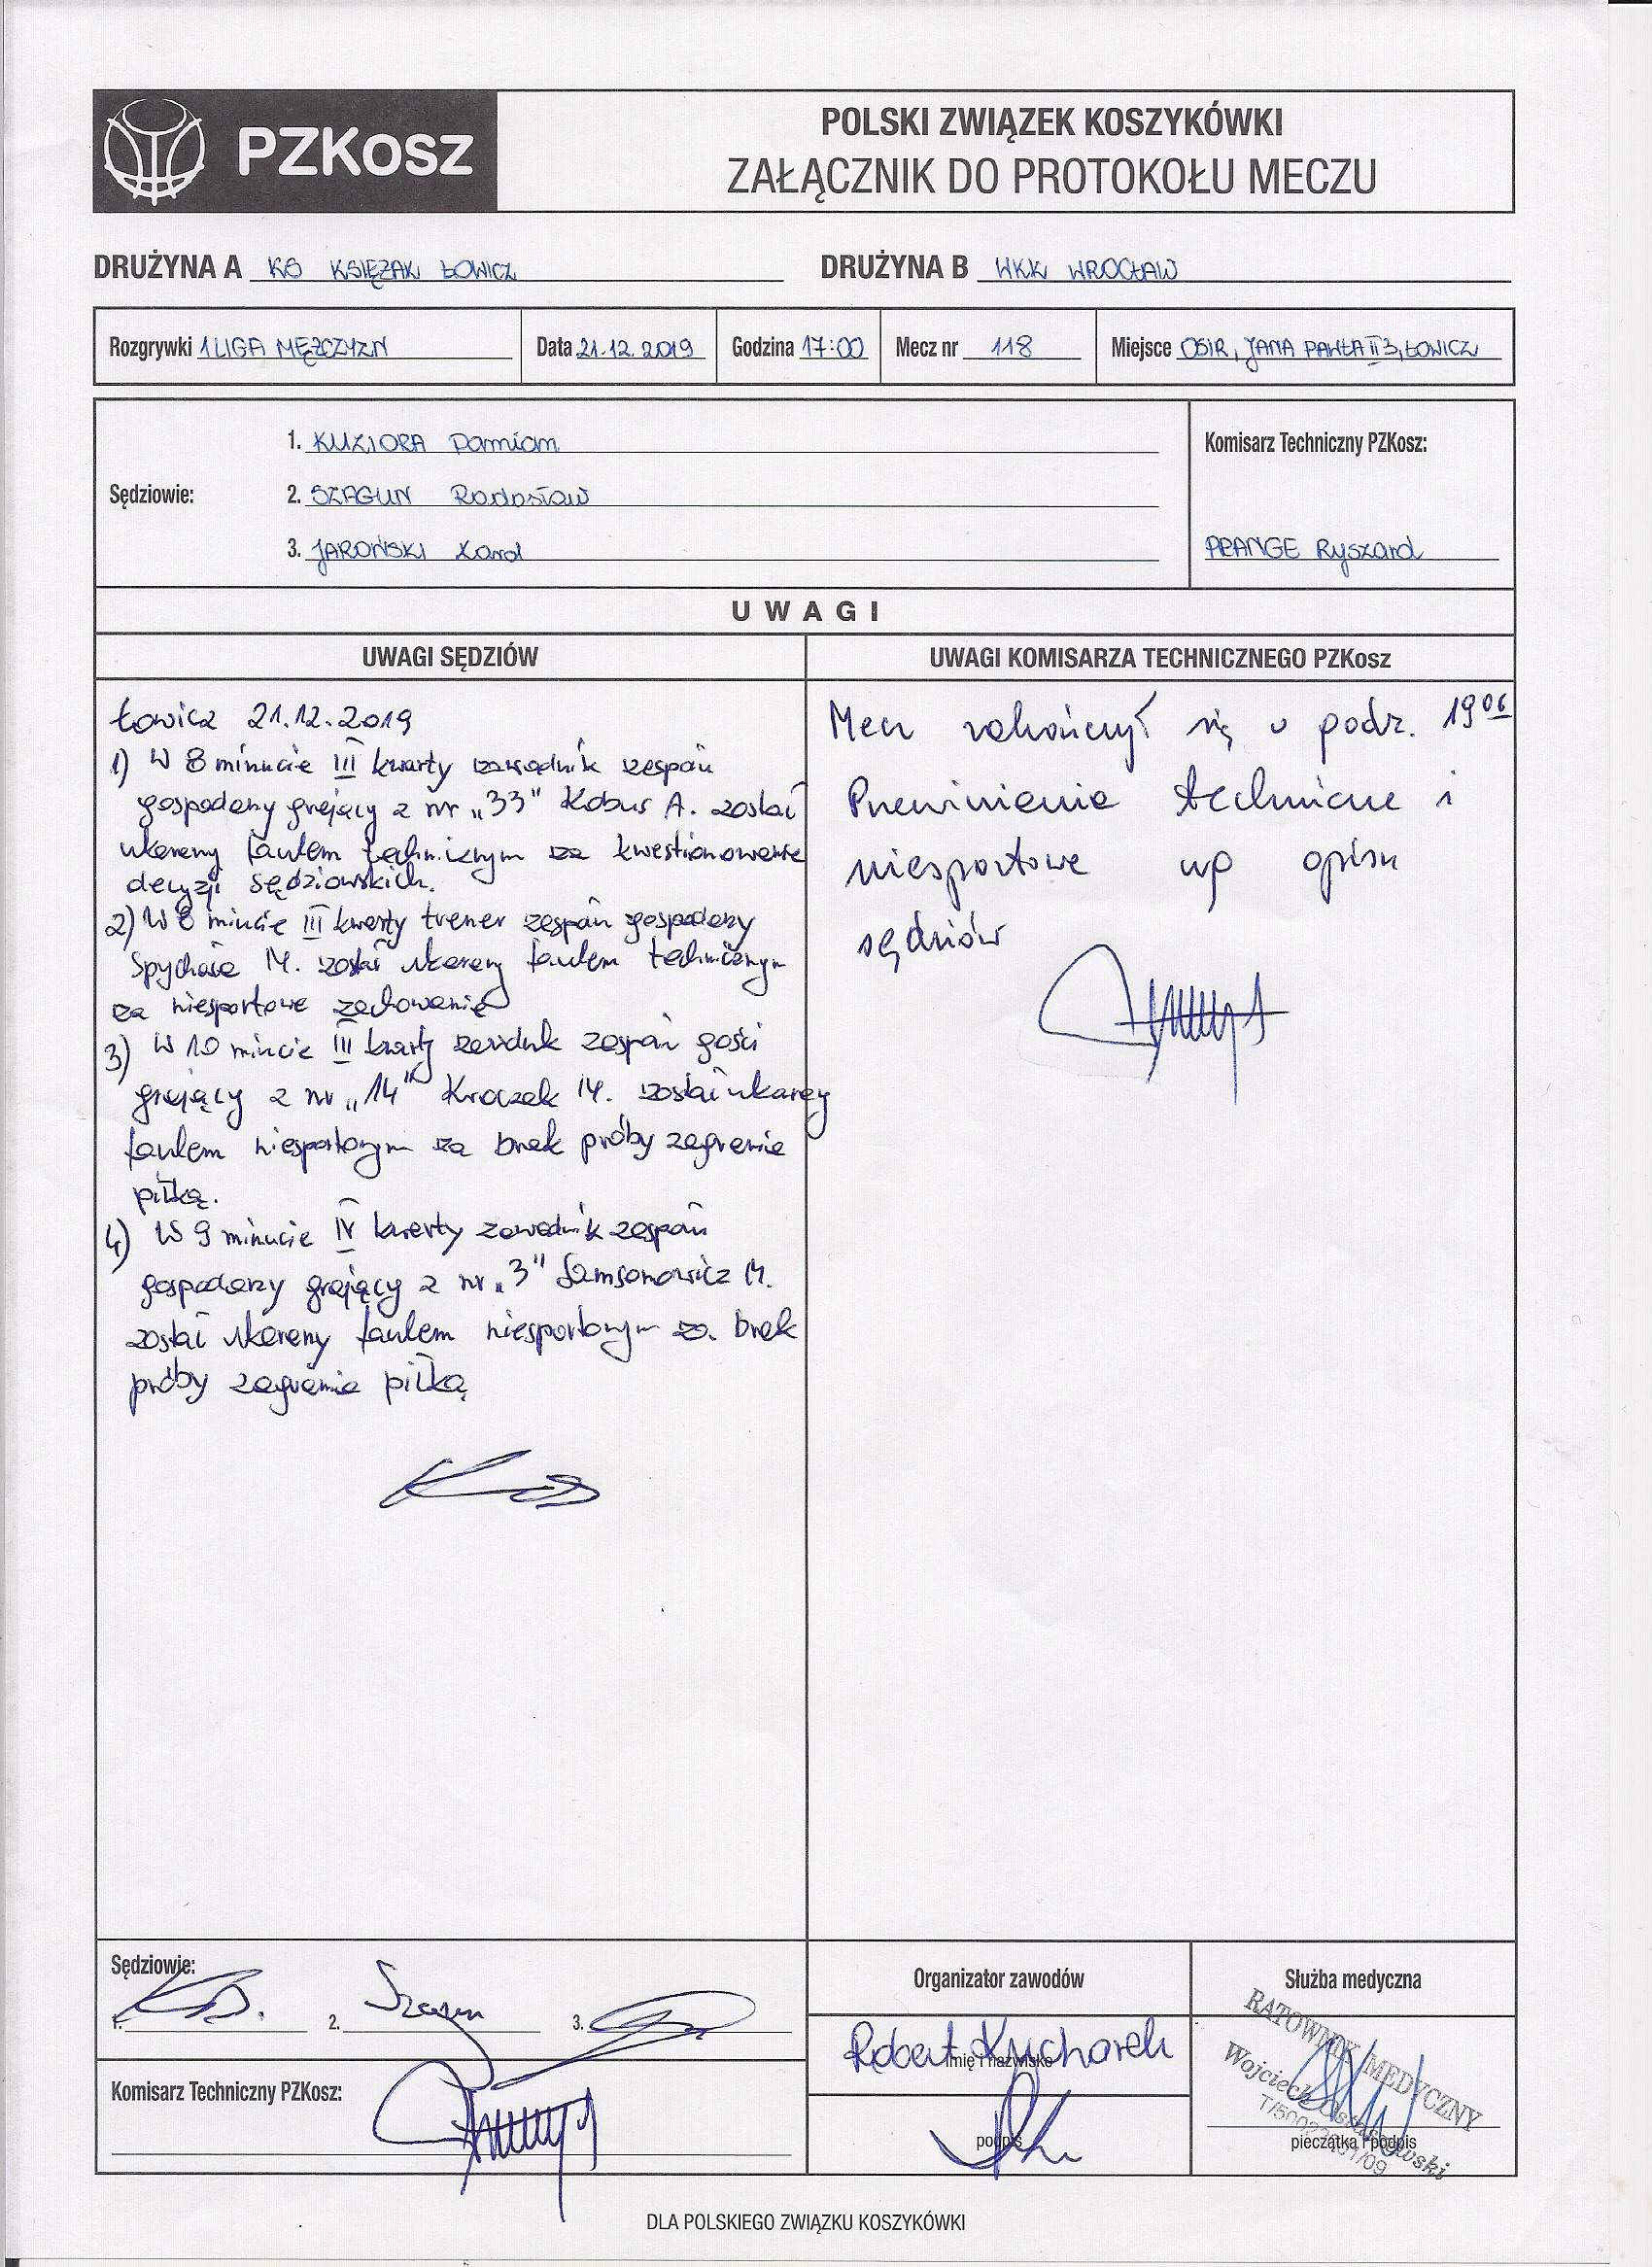 PZKosz
POLSKI ZWIĄZEK KOSZYKÓWKI
ZAŁĄCZNIK DO PROTOKOŁU MECZU
DRUŻYNA A KS KSIĘŻAK ŁOWICZ DRUŻYNA B WKK WROCŁAW
Rozgrywki 1 LIGA MĘŻCZYZN Data 21.12.2019 Godzina 17:00 Mecz nr 118 Miejsce OSIR, JANA PAWŁA II 3, ŁOWICZ
1. KUZIORA Damian
Komisarz Techniczny PZKosz:
Sędziowie: 2. SZAGUN Radosław
3. JAROŃSKI Karol
PRANGE Ryszard
UWAGI
UWAGI SĘDZIÓW
Łowicz 21.12.2019
1) W 8 minucie III kwarty zawodnik zespołu
gospodarzy grający z nr „33" Kobus A. został
ukarany faulem technicznym za kwestionowanie
decyzji sędziowskich.
2) W 8 mincie III kwarty trener zespołu gospodarzy
Spychała M. został ukarany faulem technicznym
za niesportowe zachowanie
3) W 10 mincie III kwarty zawodnik zespołu gości
grający z nr „14" Kroczek M. został ukarany
faulem niesportowym za brak próby zagrania
piłką.
4) W 9 minucie IV kwarty zawodnik zespołu
gospodarzy grający z nr „3" Samsonowicz M.
został ukarany faulem niesportowym za brak
próby zagrania piłką
UWAGI KOMISARZA TECHNICZNEGO PZKosz
Mecz zakończył się o godz. 19 06
Przewinienia techniczne i
niesportowe wg opisu
sędziów
Sędziowie:
1. 2. 3.
Komisarz Techniczny PZKosz:
Organizator zawodów
Robert Kucharek
imię i nazwisko
podpis
Służba medyczna
RATOWNIK MEDYCZNY
Wojciech
pieczątka i podpis
DLA POLSKIEGO ZWIĄZKU KOSZYKÓWKI